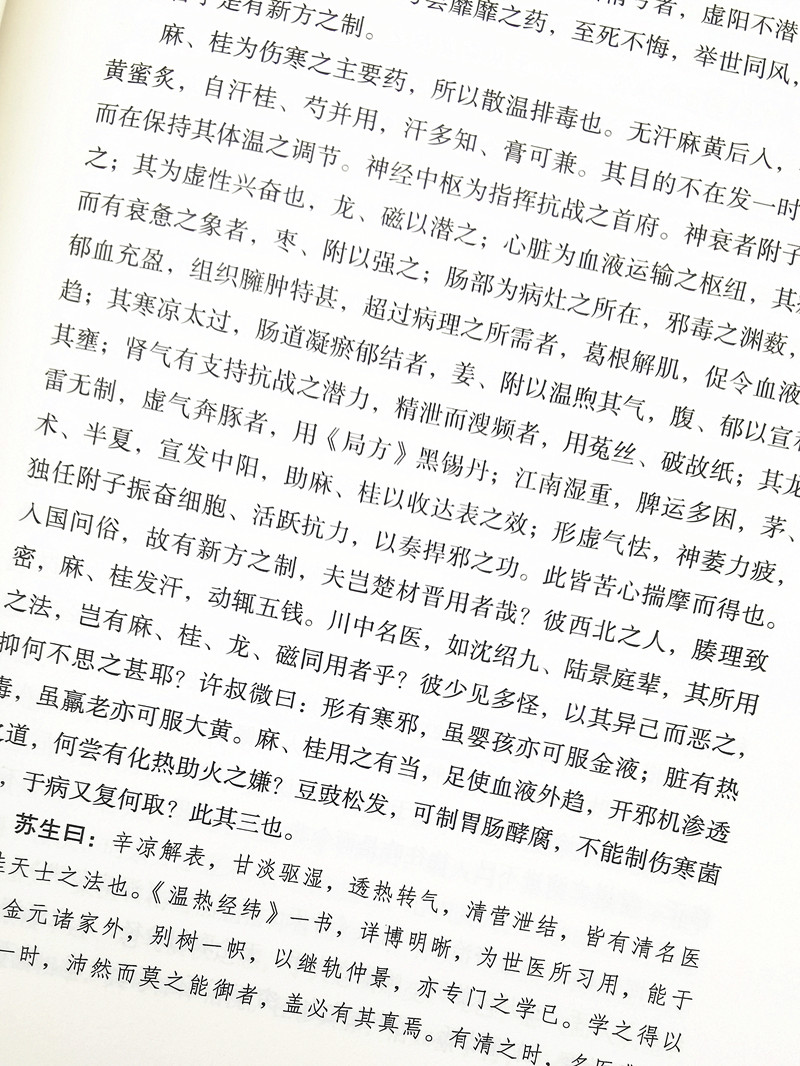 者，虚阳不潜
尝靡靡之药，至死不悔，举世同风，
于是有新方之制。
麻、桂为伤寒之主要药，所以散温排毒也。无汗麻黄后入，
黄蜜炙，自汗桂、芍并用，汗多知、膏可兼。其目的不在发一时
而在保持其体温之调节。神经中枢为指挥抗战之首府。神衰者附子
之；其为虚性兴奋也，龙、磁以潜之；心脏为血液运输之枢纽，其
而有衰惫之象者，枣、附以强之；肠部为病灶之所在，邪毒之渊薮，
郁血充盈，组织臃肿特甚，超过病理之所需者，葛根解肌，促令血液
趋；其寒凉太过，肠道凝瘀郁结者，姜、附以温煦其气，腹、郁以宣
其壅；肾气有支持抗战之潜力，精泄而溲频者，用菟丝、破故纸；其龙
雷无制，虚气奔豚者，用《局方》黑锡丹；江南湿重，脾运多困，茅、
术、半夏，宣发中阳，助麻、桂以收达表之效；形虚气怯，神萎力疲，
独任附子振奋细胞、活跃抗力，以奏捍邪之功。此皆苦心揣摩而得也。
入国问俗，故有新方之制，夫岂楚材晋用者哉？彼西北之人，腠理致
密，麻、桂发汗，动辄五钱。川中名医，如沈绍九、陆景庭辈，其所用
之法，岂有麻、桂、龙、磁同用者乎？彼少见多怪，以其异己而恶之，
抑何不思之甚耶？许叔微曰：形有寒邪，虽婴孩亦可服金液；脏有热
毒，虽羸老亦可服大黄。麻、桂用之有当，足使血液外趋，开邪机渗透
之道，何尝有化热助火之嫌？豆豉松发，可制胃肠酵腐，不能制伤寒菌
，于病又复何取？此其三也。
苏生曰：辛凉解表，甘淡驱湿，透热转气，清营泄结，皆有清名医
桂天士之法也。《温热经纬》一书，详博明晰，为世医所习用，能于
金元诸家外，别树一帜，以继轨仲景，亦专门之学已。学之得以
一时，沛然而莫之能御者，盖必有其真焉。有清之时，名医